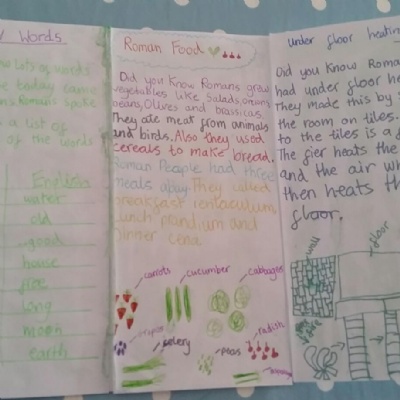 Words
lots of words
we today came
Romans spoke
a list of
of the words
English
water
old
good
house
long
moon
earth
Roman Food
Did you know Romans grew
vegetables like salads, greens
beans, Olives and brassicas.
They ate meat from animals
and birds. Also they used
cereals to make bread.
Roman People had three
meals a day. They called
breakfast ientaculum
lunch prandium and
dinner cena
carrots
cucumber
cabbages
grapes
celery
peas
radish
under floor heating
Did you know Romans
had under floor he
They made this by s
the room on tiles.
to the tiles is a f
The fier heats the
and the air wh
then heats th
floor.
wall
floor
fire